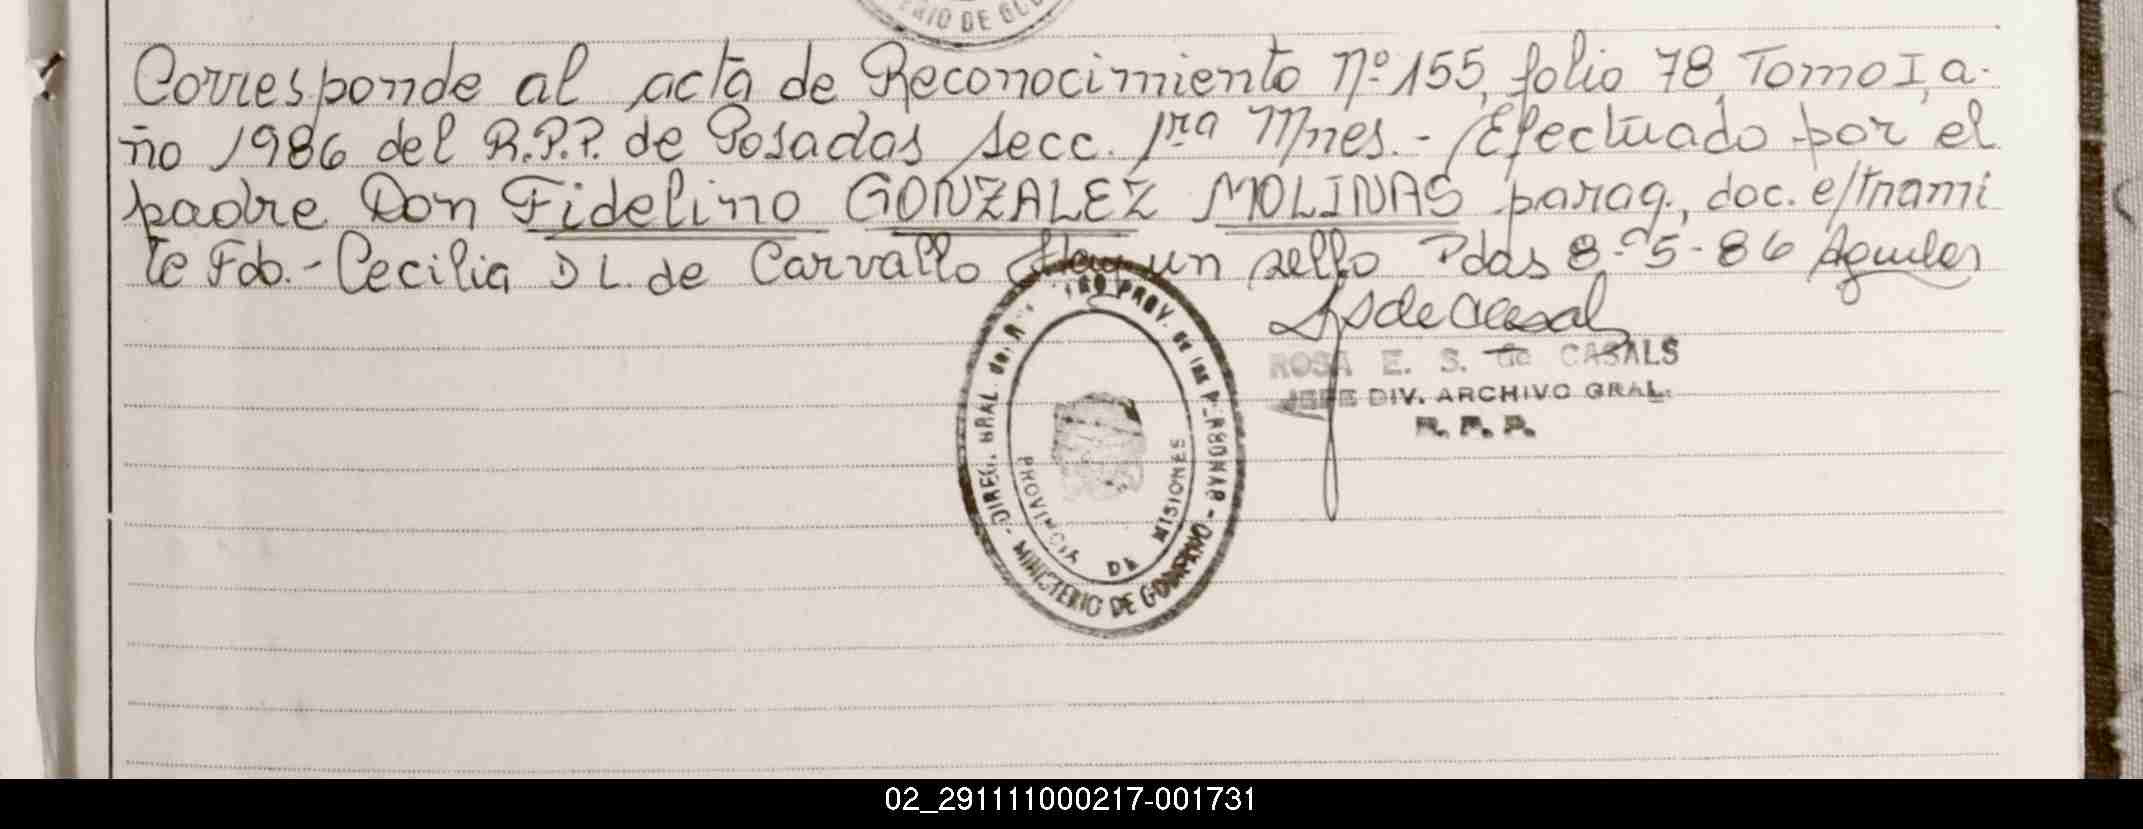 RIO DE GO
Corresponde al acta de Reconocimiento nº 155, folio 78, Tomo I, a-
ño 1986 del R.P.P. de Posadas secc. 1ra Mnes.- Efectuado por el
padre Don Fidelino GONZALEZ MOLINAS parag., doc. e/trami
te Fdo.- Cecilia D L. de Carvallo Hay un sello Pdas 8-5-86
ROSA E. S. de CASALS
JEFE DIV. ARCHIVO GRAL.
R. P. P.
DIREC. GRAL. del PROV. de las PERSONAS - MINISTERIO DE GOBIERNO -
PROVINCIA DE MISIONES
02_291111000217-001731